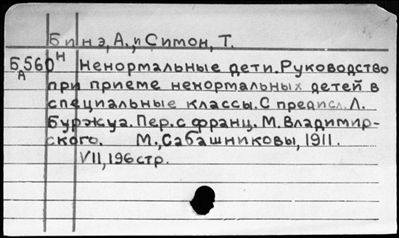 Бинэ, А., и Симон, Т.
Б560н Ненормальные дети. Руководство
А при приеме ненормальных детей в
специальные классы. С предисл. Л.
Буржуа. Пер. с франц. М. Владимир-
ского. М., Сабашниковы, 1911.
VII, 196 стр.